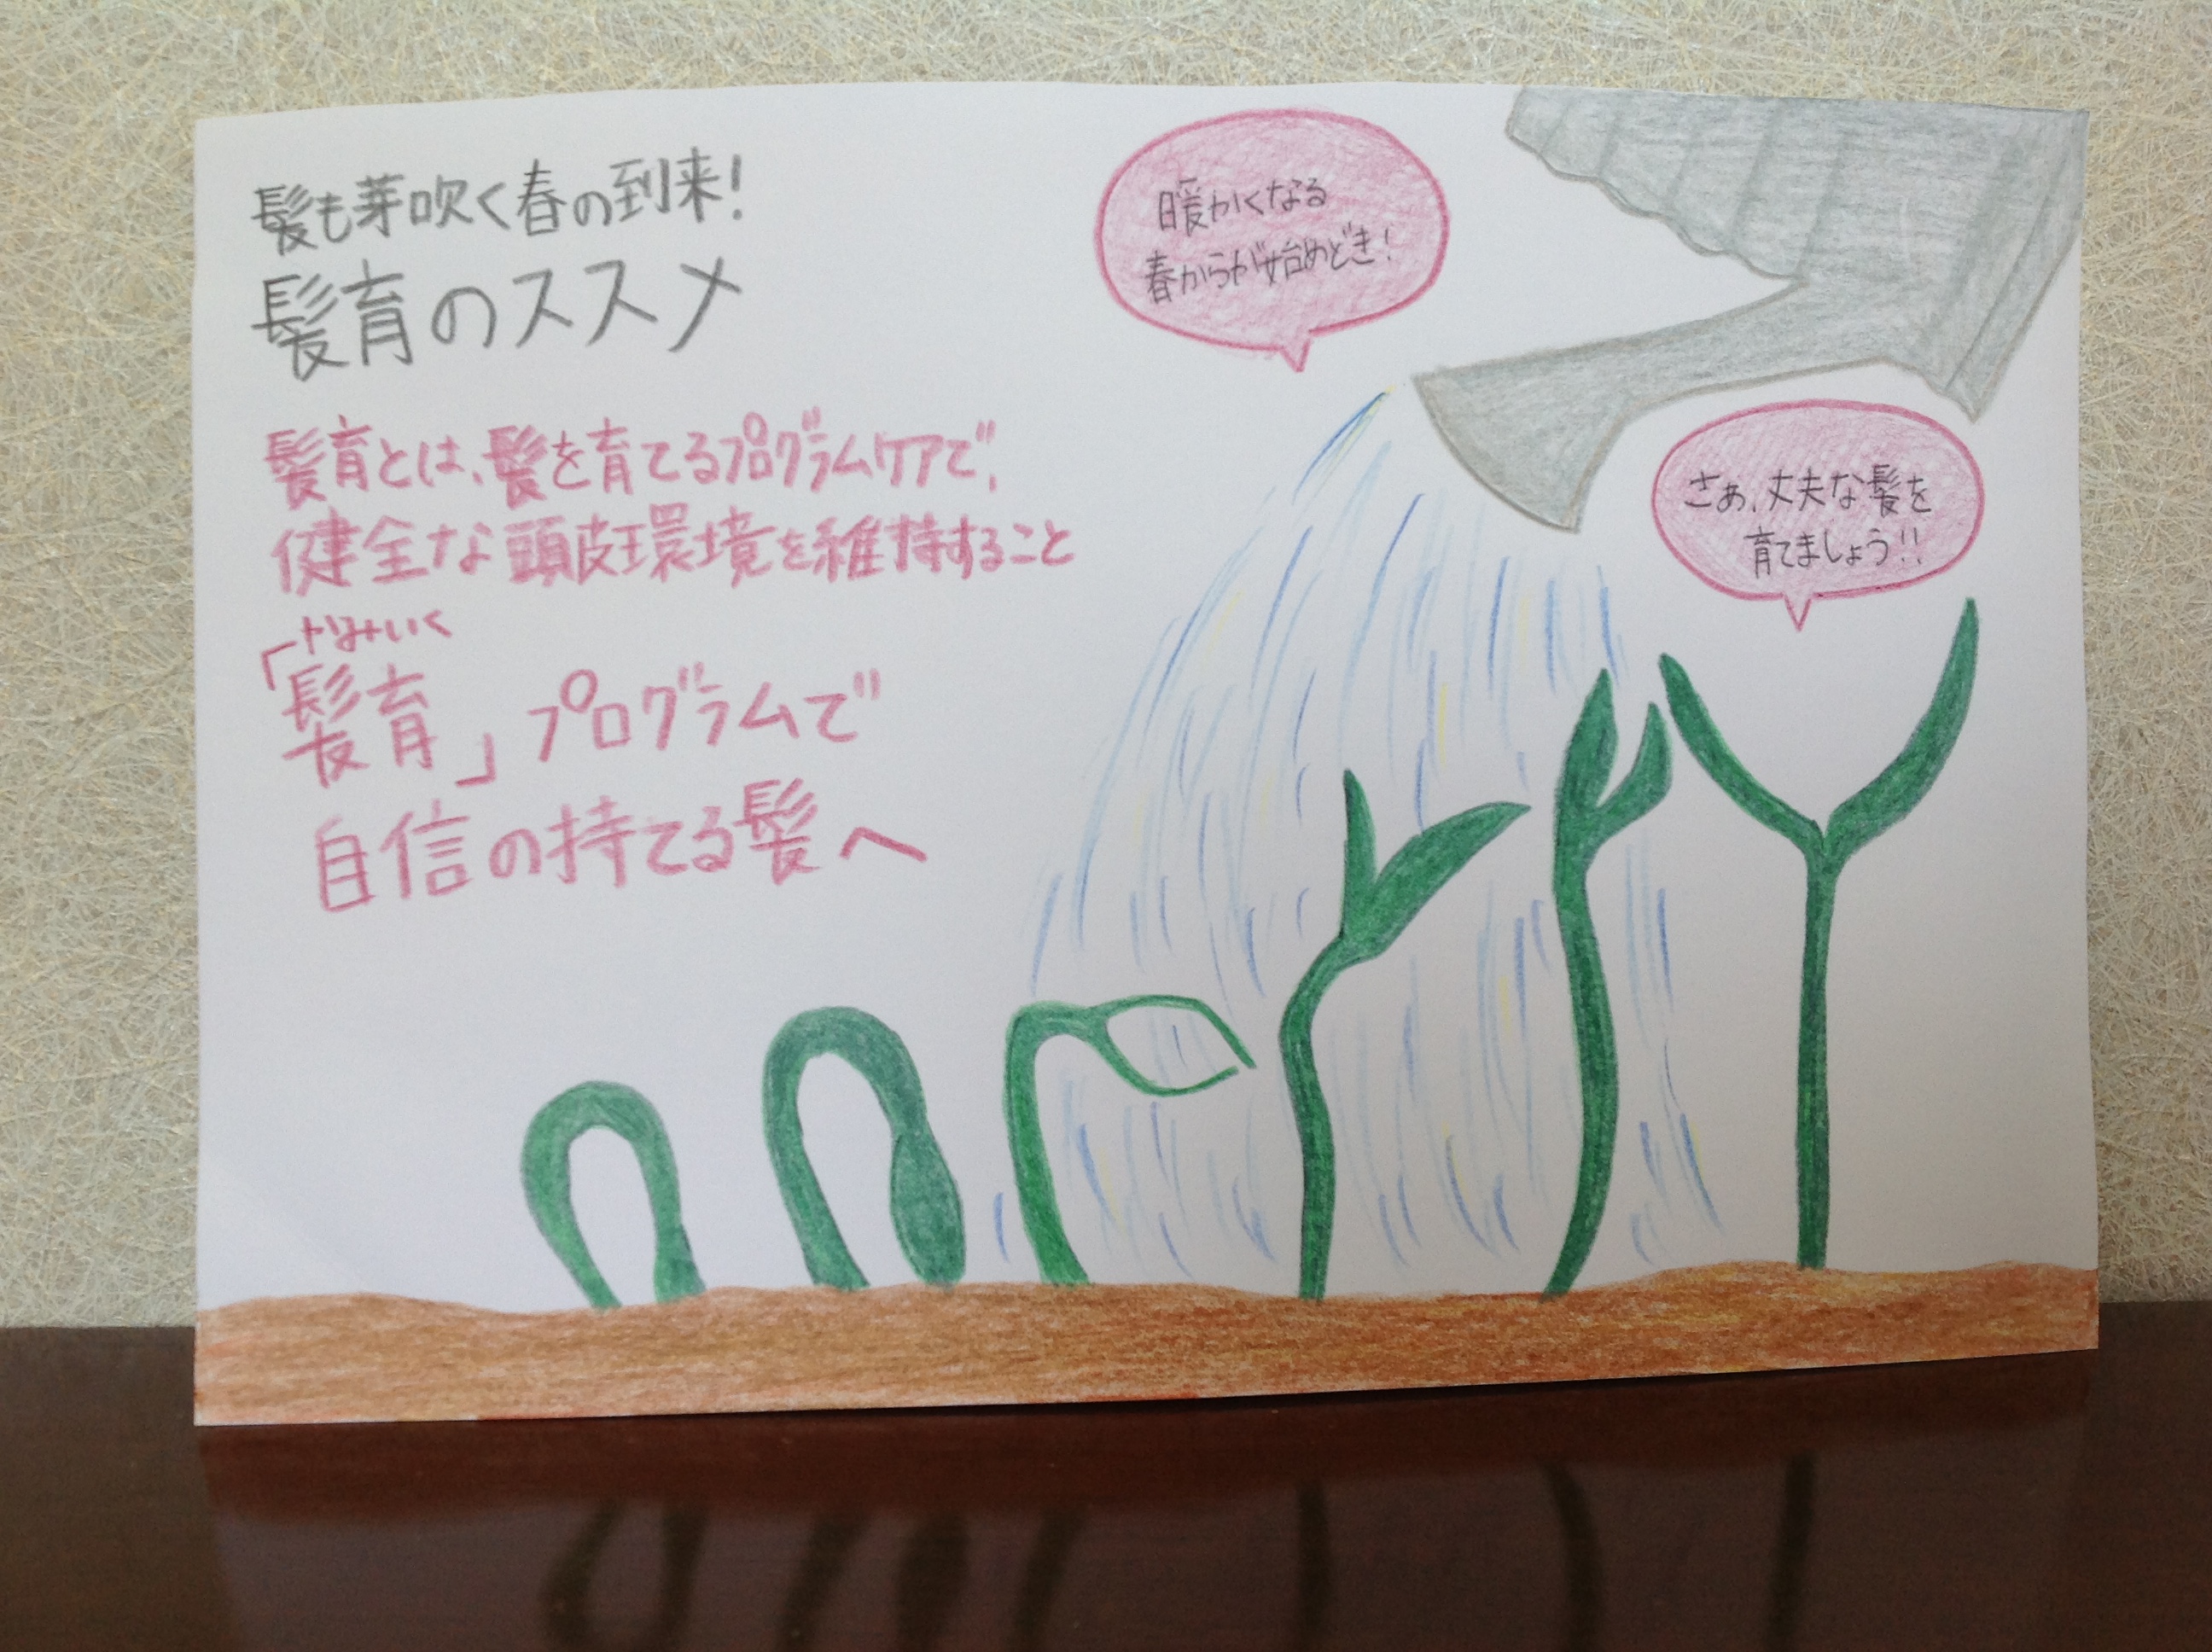 髪も芽吹く春の到来!
髪育のススメ
髪育とは、髪を育てるプログラムケアで、
健全な頭皮環境を維持すること
かみいく
「髪育」プログラムで
自信の持てる髪へ
暖かくなる
春からが始めどき!
さぁ、丈夫な髪を
育てましょう!!